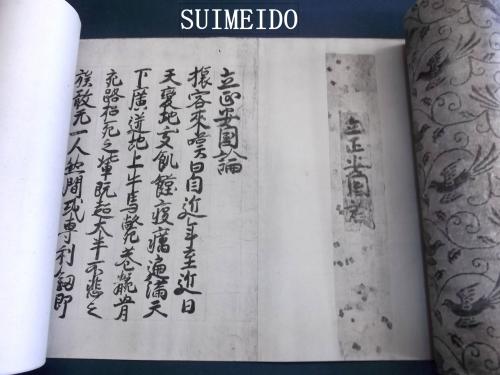 SUIMEIDO
立正安国論
立正安国論
旅客來嘆曰自近年至近日
天變地夭飢饉疫癘遍滿天
下廣迸地上牛馬斃巷骸骨
充路招死之輩既超大半不悲之
族敢无一人然間或専利釼即